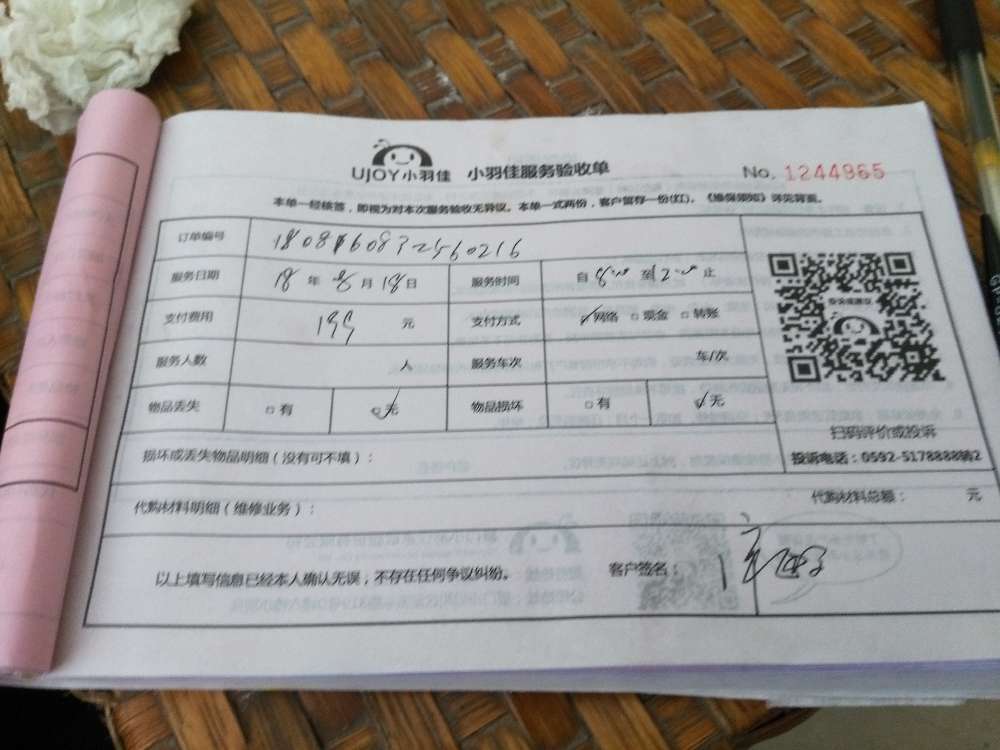 UJOY小羽佳 小羽佳服务验收单 No. 1244965
本单一经核签，即视为对本次服务验收无异议。本单一式两份，客户留存一份(红)。《维保须知》详见背面。
订单编号
服务日期 18 年 8 月 18 日 服务时间 自 8:00 至 12:00 止
支付费用 199 元 支付方式 ☑网络 □现金 □转账
服务人数 人 服务车次 车/次
物品丢失 □有 ☑无 物品损坏 □有 ☑无
投诉或建议
扫码评价或投诉
投诉电话：0592-5178888转2
损坏或丢失物品明细（没有可不填）：
代购材料明细（维修业务）： 代购材料总额： 元
以上填写信息已经本人确认无误，不存在任何争议纠纷。 客户签名：